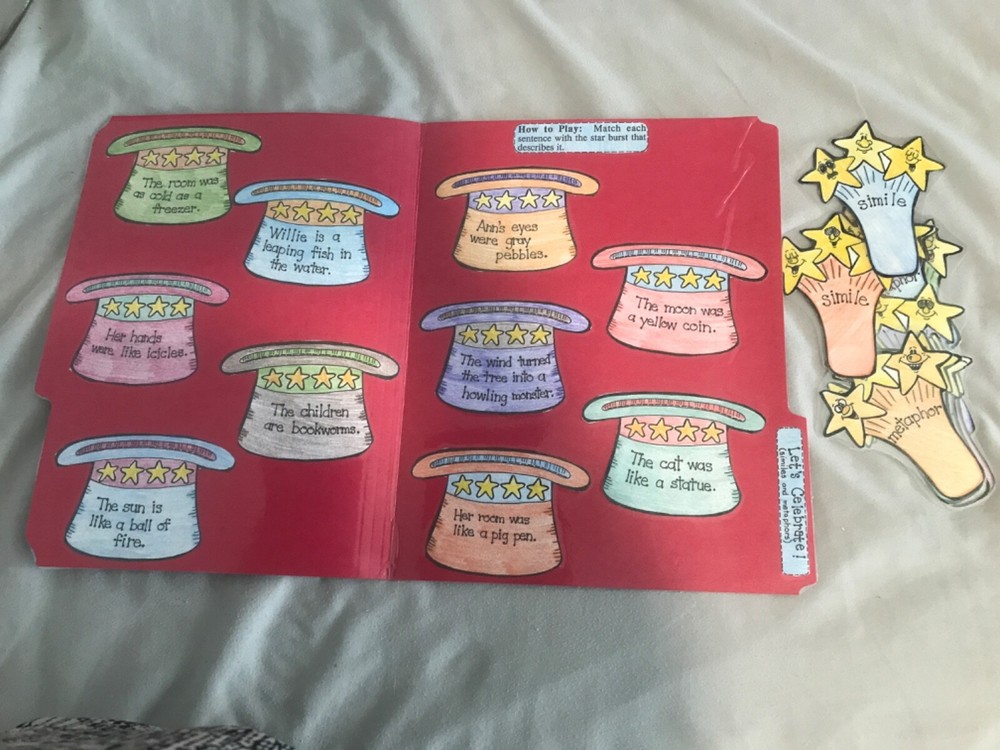 The room was
as cold as a
freezer.
Willie is a
leaping fish in
the water.
Her hands
were like icicles.
The children
are bookworms.
The sun is
like a ball of
fire.
How to Play: Match each
sentence with the star burst that
describes it.
Ann's eyes
were gray
pebbles.
The moon was
a yellow coin.
The wind turned
the tree into a
howling monster.
The cat was
like a statue.
Her room was
like a pig pen.
Let's Celebrate!
(similes and metaphors)
simile
simile
metaphor